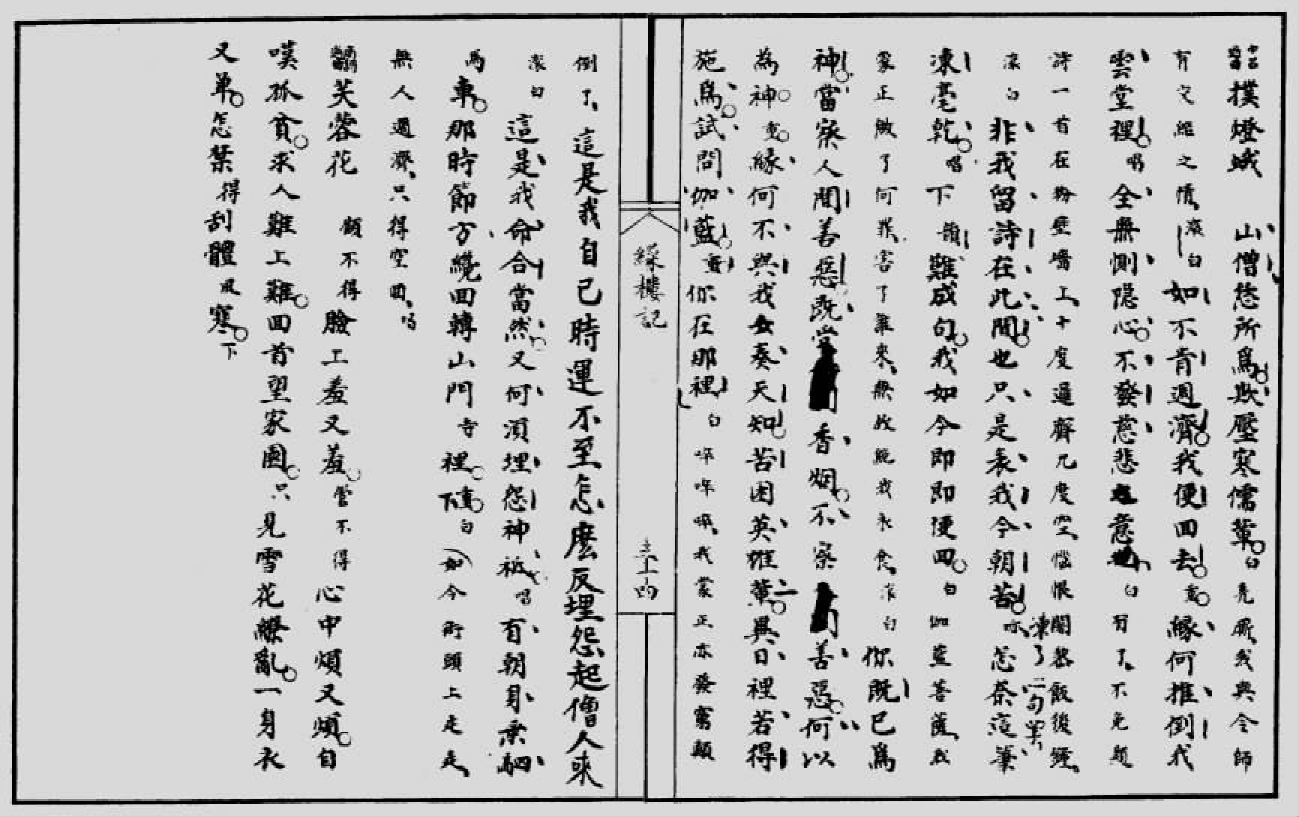 撲燈蛾 山僧恁所爲欺壓寒儒輩白 我與令師
有文經之情滾白如不肯週濟我便回去重緣何推倒我
雲堂裡唱全無惻隱心不發慈悲意白罷了不免題
詩一首在粉壁墻上十度邏齋九度空惱恨闍黎飯後鐘
滾白非我留詩在此間也只是表我今朝苦怎奈這筆
凍毫乾唱下韻難成句我如今即即便回白伽藍菩薩我
蒙正做了何罪害了誰來無故絕我衣食滾白你既已爲
神當察人間善惡既掌 香烟不察 善惡何以
為神重緣何不與我去奏天知苦困英雄輩異日裡若得
施爲試問伽藍重你在那裡白呀呀啐我蒙正亦發窮顛
倒了這是我自己時運不至怎麽反埋怨起僧人來
滾白這是我命合當然又何須埋怨神祇唱有朝身乘駟
馬車那時節方纔回轉山門寺裡重下白如今街頭上走走
無人週濟只得空回唱
芙蓉花 顧不得臉上羞又羞管不得心中煩又煩自
嘆孤貧求人難上難回首望家園只見雪花繚亂一身衣
又單怎禁得刮體風寒下
綵樓記